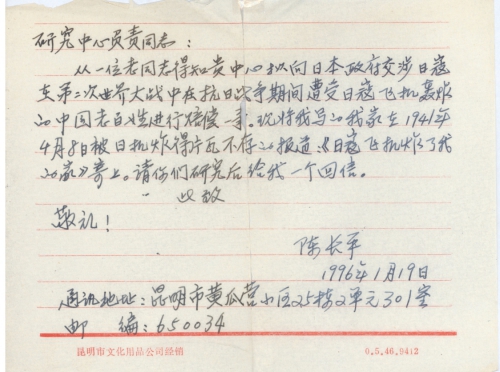 研究中心负责同志：
从一位老同志得知贵中心拟向日本政府交涉日寇
在第二次世界大战中在抗日战争期间遭受日寇飞机轰炸
的中国老百姓进行赔偿一事。现将我写的我家在1941年
4月8被日机炸得片瓦不存的报道：《日寇飞机炸了我
的家》寄上。请你们研究后给我一个回信。
此致
敬礼！
陈长平
1996年1月19日
通讯地址：昆明市黄瓜营小区25栋2单元301室
邮 编：650034
昆明市文化用品公司经销 0.5.46.9412